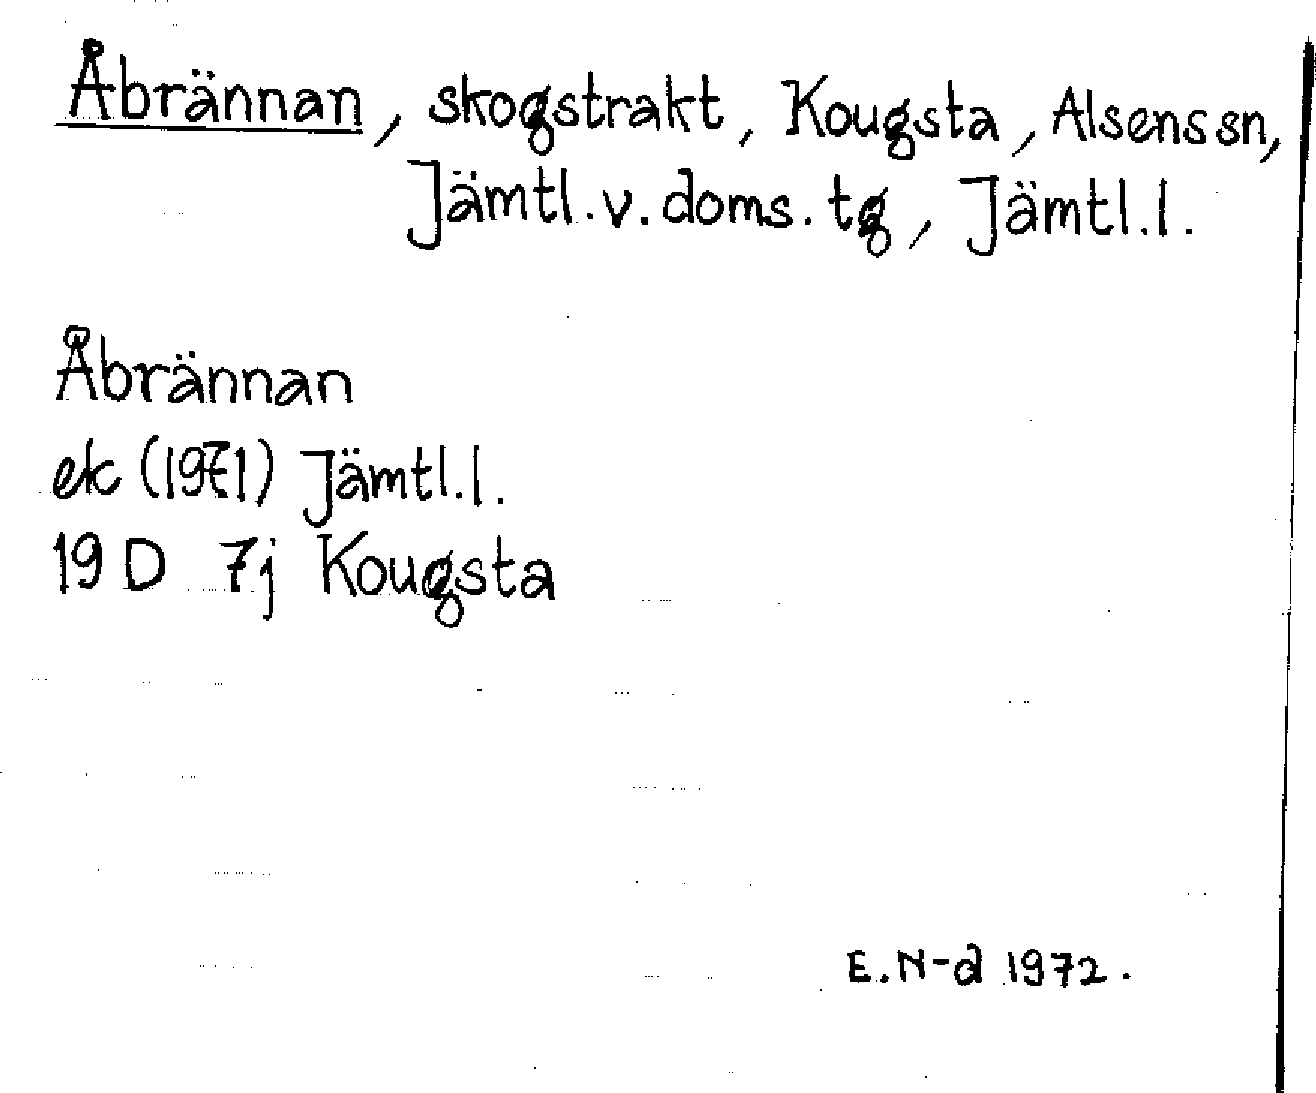 Åbrännan, skogstrakt, Kougsta, Alsens sn,
Jämtl. v. doms. tg, Jämtl. l.
Åbrännan
ek (1971) Jämtl. l.
19 D 7j Kougsta
E. N-d 1972.